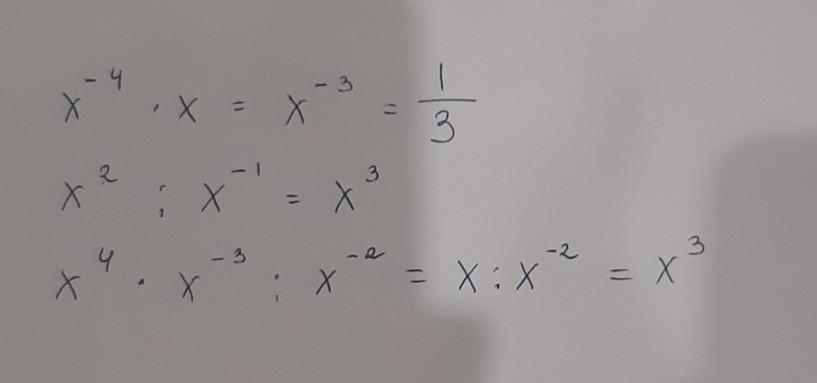 x⁻⁴ · x = x⁻³ = 1/3
x² : x⁻¹ = x³
x⁴ · x⁻³ : x⁻² = x : x⁻² = x³